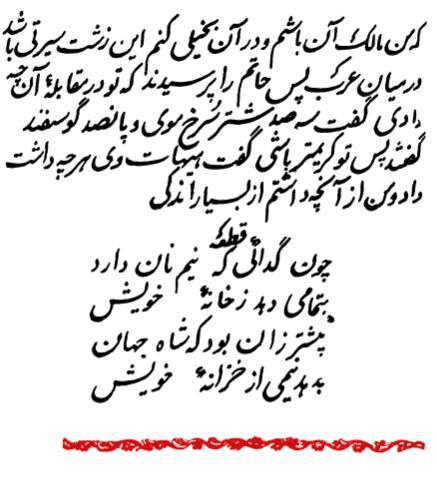 که من مالک آن باشم و در آن بخیلی کنم این زشت سیرتی باشد
در میان عرب پس حاتم را پرسیدند که تو در مقابلهٔ آن چه
دادی گفت سه صد شتر سرخ موی و پانصد گوسفند
گفتند پس تو کریمتر باشی گفت هیهات وی هر چه داشت
داد و من از آنچه داشتم از بسیار اندکی
قطعه
چون گدائی که نیم نان دارد
بتمامی دهد ز خانهٔ خویش
بیشتر زان بود که شاه جهان
بدهد نیمی از خزانهٔ خویش